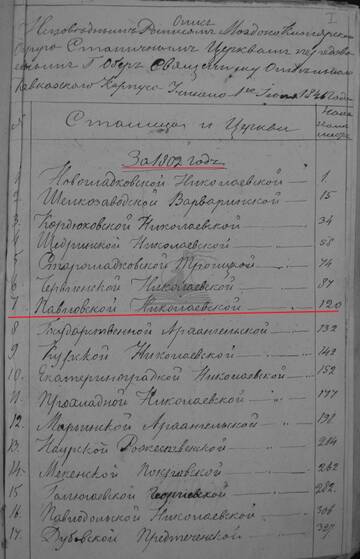 Опись
I
Исповеднымъ Росписямъ Моздоко Кизлярскаго
Округа Станичнымъ Церквамъ
Г. Оберъ Священнику Отдельнаго
Кавказскаго Корпуса 1846 года
№
Станицы и Церкви
За 1802 годъ
1. Новогладковской Николаевской 1.
2. Шелкозаводской Варваринской 15
3. Кордюковской Николаевской 34
4. Щедринской Николаевской 58
5. Старогладковской Троицкой 74
6 Червленской Николаевской 87
7. Павловской Николаевской 120
8 Государственной Архангельской 132
9 Курской Николаевской 142
10. Екатериноградской Николаевской 152
11. Прохладной Николаевской 177
12. Марьинской Архангельской 198
13. Наурской Рожественской 214
14. Мекенской Покровской 262
15 Галюгаевской Георгиевской 282.
16. Павлодольской Николаевской 306
17. Дубовской Предтеченской 327